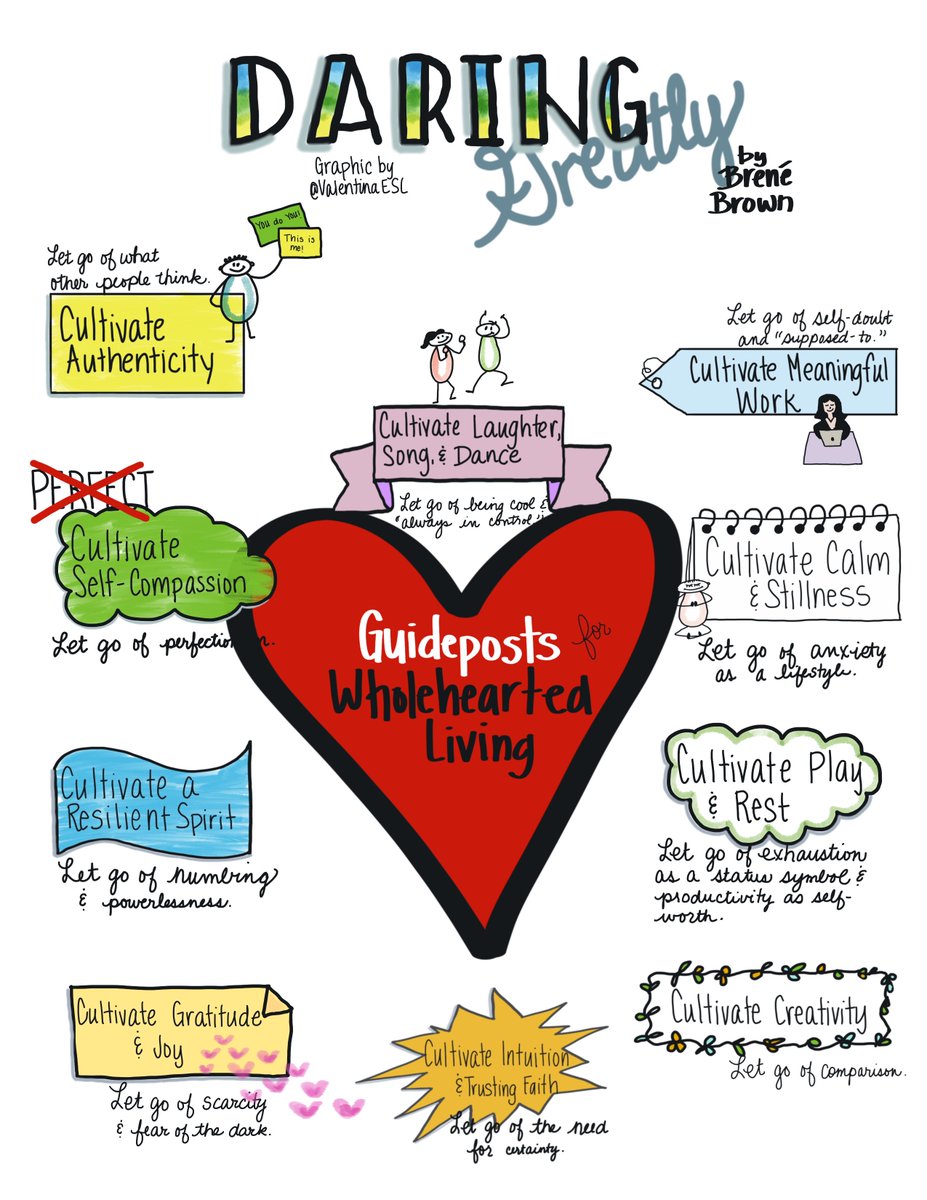 DARING
Greatly
by
Brené
Brown
Graphic by
@ValentinaESL
You do You!
This is
me!
Let go of what
other people think.
Cultivate
Authenticity
Cultivate Laughter,
Song, & Dance
Let go of being cool &
"always in control"
Let go of self-doubt
and "supposed-to."
Cultivate Meaningful
Work
PERFECT
Cultivate
Self-Compassion
Let go of
Cultivate Calm
& Stillness
Let go of anxiety
as a lifestyle.
Guideposts for
Wholehearted
Living
Cultivate a
Resilient Spirit
Let go of numbing
& powerlessness.
Cultivate Play
& Rest
Let go of exhaustion
as a status symbol &
productivity as self-
worth.
Cultivate Gratitude
& Joy
Let go of scarcity
& fear of the dark.
Cultivate Intuition
& Trusting Faith
Let go of the need
for certainty.
Cultivate Creativity
Let go of comparison.